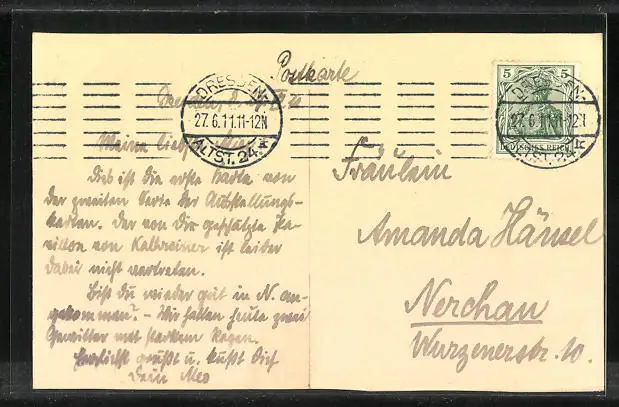 Postkarte
DRESDEN-
27.6.11.11-12N
ALTST.24.
5 5
DEUTSCHES REICH
DRESDEN-
27.6.11.11-12N
ALTST.24.
Dresden,
Meine liebste
Dies ist die erste Karte von
der zweiten Serie der Ausstellungs-
karten. Der von Dir geschätzte Pa-
villon von Kalkreiner ist leider
dabei nicht vertreten.
Bist Du wieder gut in N. an-
gekommen? - Wir hatten heute zwei
Gewitter mit starkem Regen.
Herzlichst grüßt u. küßt Dich
Dein
Fräulein
Amanda Hänsel
Nerchau
Wurzenerstr. 10.